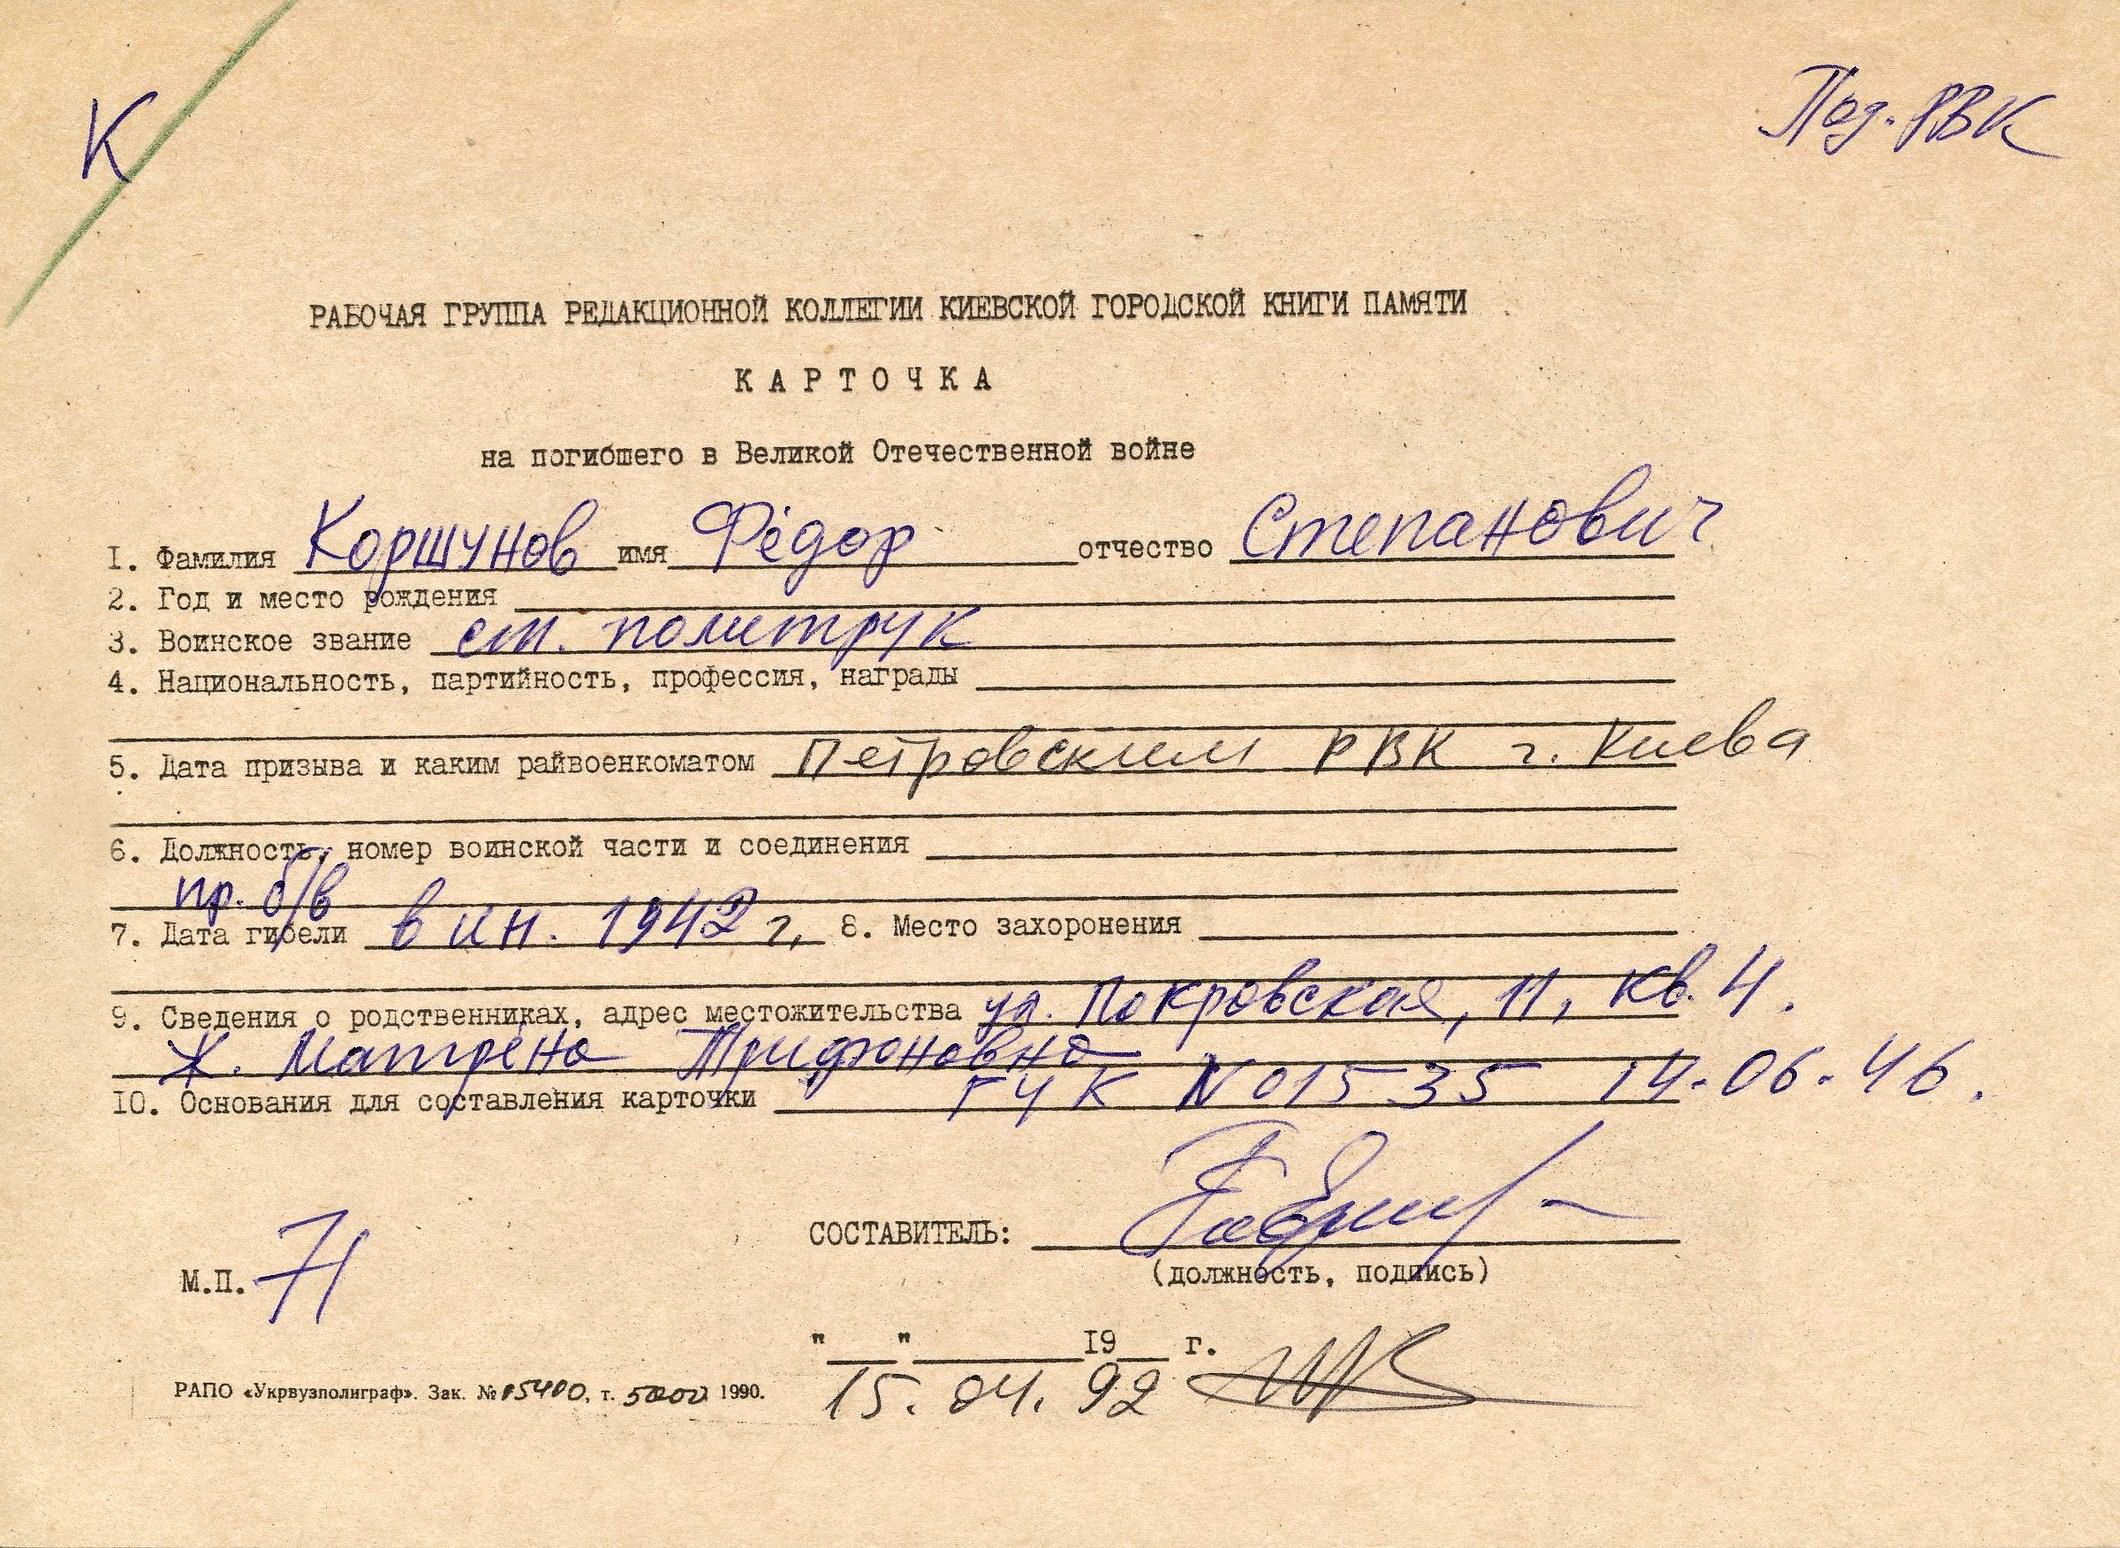 К
Под. РВК
РАБОЧАЯ ГРУППА РЕДАКЦИОННОЙ КОЛЛЕГИИ КИЕВСКОЙ ГОРОДСКОЙ КНИГИ ПАМЯТИ
КАРТОЧКА
на погибшего в Великой Отечественной войне
1. Фамилия Коршунов имя Фёдор отчество Степанович
2. Год и место рождения
3. Воинское звание ст. политрук
4. Национальность, партийность, профессия, награды
5. Дата призыва и каким райвоенкоматом Петровским РВК г. Киева
6. Должность, номер воинской части и соединения
пр. б/в
7. Дата гибели в ин. 1942 г. 8. Место захоронения
9. Сведения о родственниках, адрес местожительства ул. Покровская, 11, кв. 4.
Ж. Матрёна Трифоновна
10. Основания для составления карточки ГУК N 01535 14.06.46.
СОСТАВИТЕЛЬ:
(должность, подпись)
М.П. 71
" " 19 г.
15.04.92
РАПО «Укрвузполиграф». Зак. № 05400, т. 5000 1990.